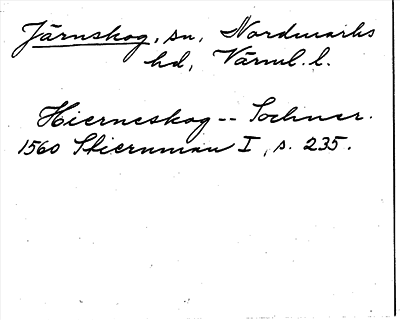 Järnskog, sn, Nordmarks
hd, Värml. l.
Hierneskog -- Sochner.
1560 Stiernman I, s. 235.